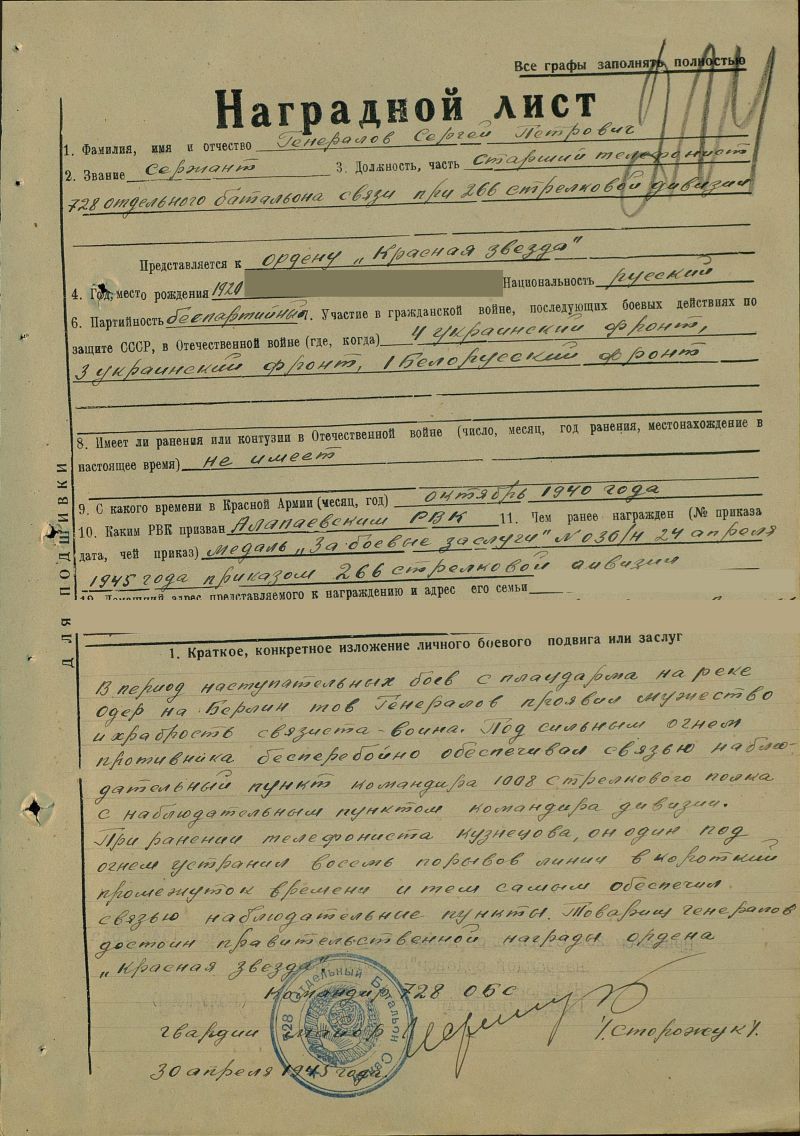 Все графы заполнять полностью
Наградной лист
1. Фамилия, имя и отчество Генералов Сергей Петрович
2. Звание сержант 3. Должность, часть старший телефонист
728 отдельного батальона связи при 266 стрелковой дивизии
Представляется к ордену „Красная звезда"
4. Год, место рождения 1920 Национальность русский
6. Партийность беспартийный. Участие в гражданской войне, последующих боевых действиях по
защите СССР, в Отечественной войне (где, когда) 4 украинский фронт,
3 украинский фронт, 1 Белорусский фронт
8. Имеет ли ранения или контузии в Отечественной войне (число, месяц, год ранения, местонахождение в
настоящее время) не имеет
9. С какого времени в Красной Армии (месяц, год) октябрь 1940 года
10. Каким РВК призван Алапаевским РВК 11. Чем ранее награжден (№ приказа
дата, чей приказ) медаль „За боевые заслуги" N 030/н 24 апреля
1945 года приказом 266 стрелковой дивизии
представляемого к награждению и адрес его семьи
1. Краткое, конкретное изложение личного боевого подвига или заслуг
В период наступательных боев с плаударма на реке
Одер на Берлин тов Генералов проявил мужество
и храбрость связиста-воина. Под сильным огнем
противника бесперебойно обеспечивал связью наблю-
дательный пункт командира 1008 стрелкового полка
с наблюдательным пунктом командира дивизии.
При ранении телефониста Кузнецова, он один под
огнем устранил восемь порывов линии в короткий
промежуток времени и тем самым обеспечил
связью наблюдательные пункты. Товарищ Генералов
достоин правительственной награды ордена
„Красная звезда".
Командир 728 ОБС
гвардии майор /Сторожук/.
30 апреля 1945 года.
728 Отдельный Батальон Связи
ДЛЯ ПОДШИВКИ